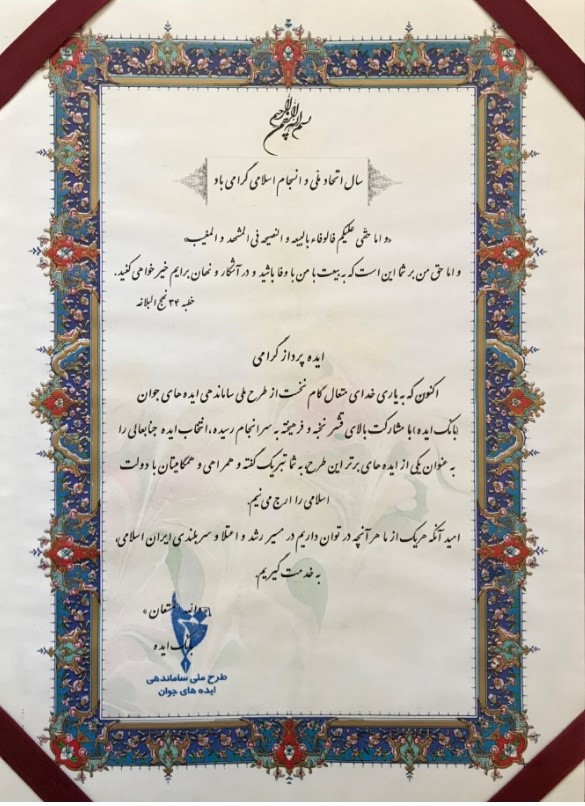 بسم الله الرحمن الرحیم
سال اتحاد ملی و انسجام اسلامی گرامی باد
«و اما حقی علیکم فالوفاء بالبیعه و النصیحه فی المشهد و المغیب»
و اما حق من بر شما این است که به بیعت با من با وفا باشید و در آشکار و نهان برایم خیر خواهی کنید.
خطبه ۳۴ نهج البلاغه
ایده پرداز گرامی
اکنون که به یاری خدای متعال گام نخست از طرح ملی ساماندهی ایده های جوان
(بانک ایده) با مشارکت بالای قشر نخبه و فرهیخته به سرانجام رسیده، انتخاب ایده جنابعالی را
به عنوان یکی از ایده های برتر این طرح، به شما تبریک گفته و همراهی و همگامیتان با دولت
اسلامی را ارج می نهیم.
امید آنکه هریک از ما هر آنچه در توان داریم در مسیر رشد و اعتلا و سربلندی ایران اسلامی،
به خدمت گیریم.
«والله المستعان»
بانک ایده
طرح ملی ساماندهی
ایده های جوان